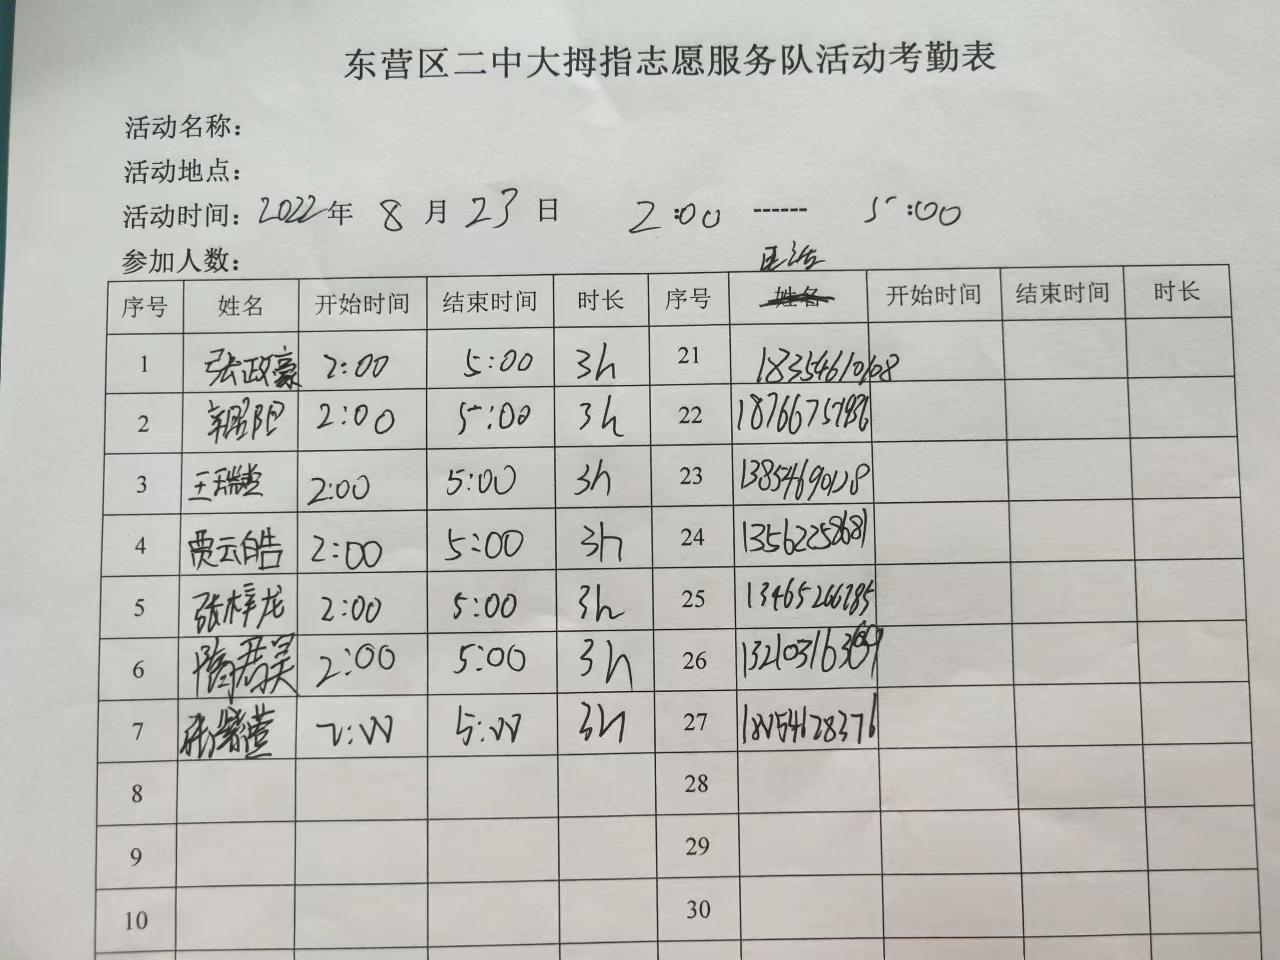 东营区二中大拇指志愿服务队活动考勤表
活动名称：
活动地点：
活动时间：2022年 8月23日 2:00 ------ 5:00
参加人数：
电话
序号 姓名 开始时间 结束时间 时长 序号 姓名 开始时间 结束时间 时长
1 张政豪 2:00 5:00 3h 21 18354610108
2 2:00 5:00 3h 22
3 2:00 5:00 3h 23 13854690128
4 贾云皓 2:00 5:00 3h 24 13562258681
5 张梓龙 2:00 5:00 3h 25
6 隋君昊 2:00 5:00 3h 26
7 张紫萱 2:00 5:00 3h 27
8 28
9 29
10 30